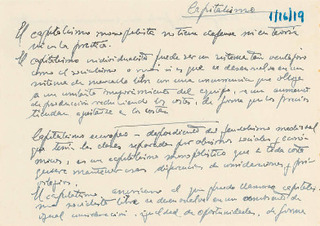 Capitalismo
1/16/19
El capitalismo monopolista no tiene defensa ni en teoría
ni en la práctica.
El capitalismo individualista puede ser un sistema tan ventajoso
como el socialismo o más si es que se desenvuelve en un
sistema de mercado libre con una concurrencia que obliga
a un constante mejoramiento del equipo, a un aumento
de producción reduciendo los costos, de forma que los precios
tiendan a los costos
Capitalismo europeo - dependiente del feudalismo medieval
que tenía las clases separadas por abismos sociales y econó-
micos, es un capitalismo monopolístico que a toda costa
quiere mantener esas diferencias de consideraciones y pri-
vilegios.
El capitalismo americano al que puede llamarse capitalis-
mo socialista libre se desenvuelve en un ambiente de
igual consideración, igualdad de oportunidades, de forma